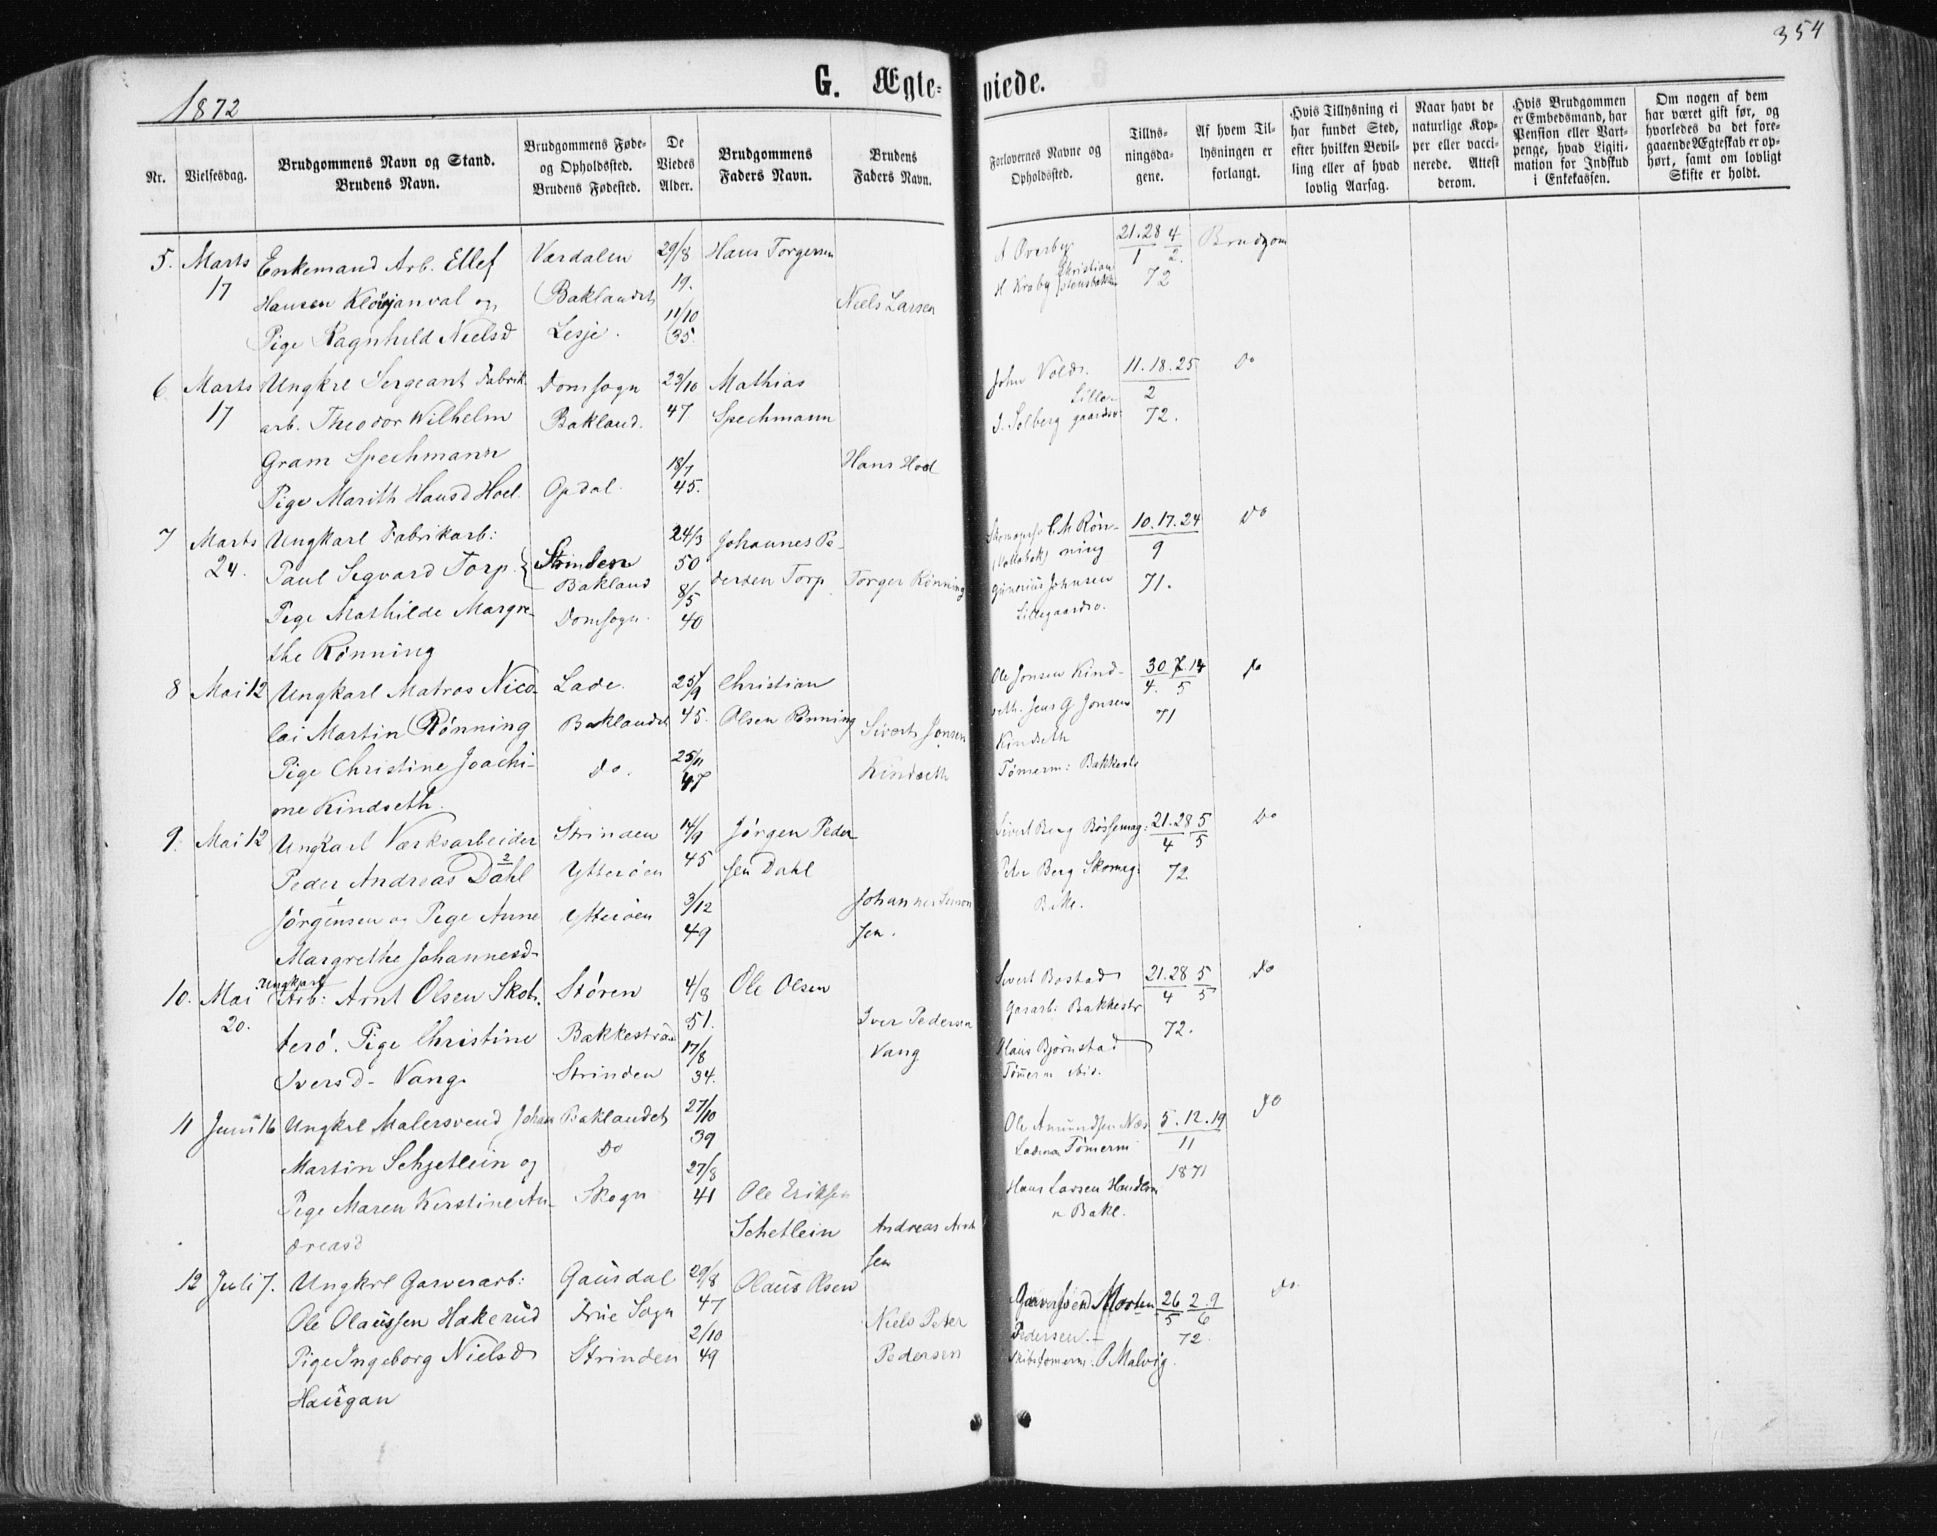 354
1872
G. Ægte-
viede.
Nr.
Vielsesdag.
Brudgommens Navn og Stand.
Brudens Navn.
Brudgommens Føde-
og Opholdssted.
Brudens Fødested.
De
Viedes
Alder.
Brudgommens
Faders Navn.
Brudens
Faders Navn.
Forlovernes Navne og
Opholdssted.
Tillys-
ningsda-
gene.
Af hvem Til-
lysningen er
forlangt.
Hvis Tillysning ei
har fundet Sted,
efter hvilken Bevil-
ling eller af hvad
lovlig Aarsag.
Naar havt de
naturlige Kop-
per eller vacci-
nerede. Attest
derom.
Hvis Brudgommen
er Embedsmand, har
Pension eller Vart-
penge, hvad Ligiti-
mation for Indskud
i Enkekassen.
Om nogen af dem
har været gift før, og
hvorledes da det fore-
gaaende Ægteskab er op-
hørt, samt om lovligt
Skifte er holdt.
5.
Marts
17
Enkemand Arb. Ellef
Hansen og
Pige Ragnhild Nielsd
Værdalen
Baklandet
Lesje.
29/8
19.
11/10
35.
Hans Torgersen
Niels Larsen
A Overby
H Kraby Christian
21.28 4
1 2.
72
Brudgom
6
Marts
17
Ungkrl Sergeant Fabrik
arb. Theodor Wilhelm
Gram Spechmann
Pige Marith Hansd Hoel
Domsogn
Bakland.
Opdal.
23/10
47
18/7
45.
Mathias
Spechmann
Hans Hoel
John Volds.
Lille-
J. Solberg gaardsv.
11.18.25
2
72.
Do
7
Marts
24.
Ungkarl Fabrikarb:
Paul Segvard Torp.
Pige Mathilde Margre-
the Rønning
Strinden
Bakland
Domsogn.
24/3
50
8/5
40
Johannes Pe-
dersen Torp
Torger Rønning
C M Røn-
ning
Gunerius Johnsen
Lillegaardsv.
10.17.24
9
71.
Do
8
Mai 12
Ungkarl Matros Nico-
lai Martin Rønning
Pige Christine Joachi-
me Kindseth.
Lade.
Baklandet
Do.
25/9
45.
25/11
47
Christian
Olsen Rønning
Sivert Jonsen
Kindseth
Ole Jonsen Kind-
seth. Jens G Jonsen
Kindseth
Tømerm: Bakkestr
30 7.14
4. 5
71
Do
9.
Mai 12
Ungkarl Værksarbeider
Peder Andreas Dahl
Jørgensen og Pige Anne
Margrethe Johannesd-
Strinden
Ytterøen
Ytterøen
14/9
45
3/12
49
Jørgen Peder
sen Dahl
Johannes Simon
sen.
Sivert Berg Bøssemag:
Peter Berg Skomag:
Bakke.
21.28 5
4 5
72.
Do
10.
Mai
20.
Ungkarl
Arb: Arnt Olsen Skot-
terø. Pige Christine
Iversd- Vang.
Støren
Bakkestrand
Strinden
4/8
51.
17/8
34.
Ole Olsen
Iver Pedersen
Vang
Sivert Bostad
Gasarb: Bakkestr
Olaus Bjørnstad
Tømerm ibid.
21.28 5
4 5
72.
Do
11
Juni 16
Ungkrl Malersvend Johan
Martin Schjetlein og
Pige Maren Kirstine An-
dreasd
Baklandet
Do
Skogn
27/10
39
27/8
41
Ole Eriksen
Schetlein
Andreas Arnt
sen
Ole Amundsen Næs
Tømerm
Hans Larsen Handlsm
Bakl.
5.12.19
11
1871
Do
12
Juli 7.
Ungkrl Garverarb:
Ole Olaussen Hakerud
Pige Ingeborg Nielsd
Haugan
Gausdal
Frue Sogn
Strinden
29/8
47
2/10
49
Olaus Olsen
Niels Peter
Pedersen
Garversvend Morten
Pedersen.
Skibstømerm. O Malvig.
26 2.9
5 6
72.
do.